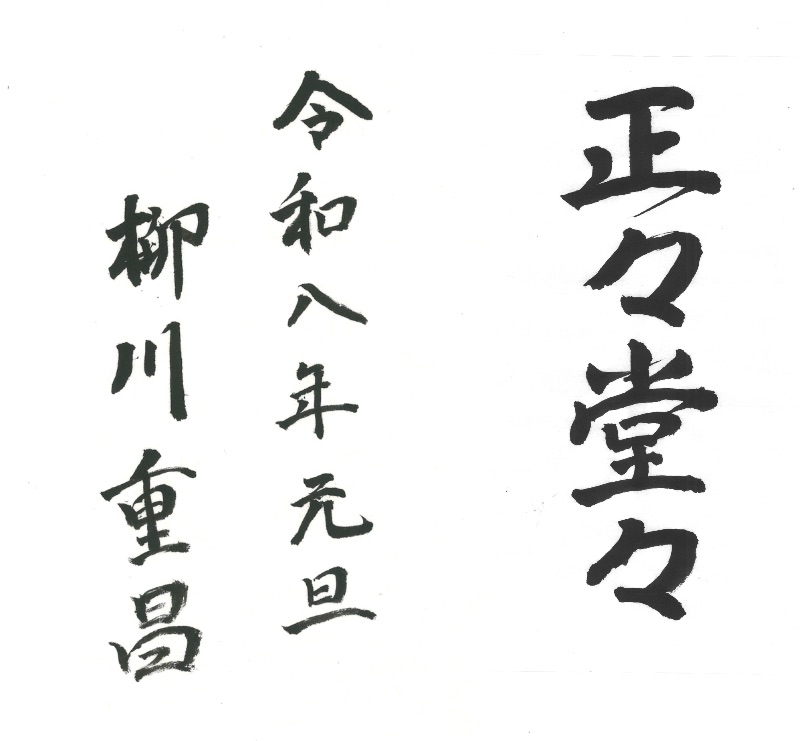 正々堂々
令和八年元旦
柳川重昌